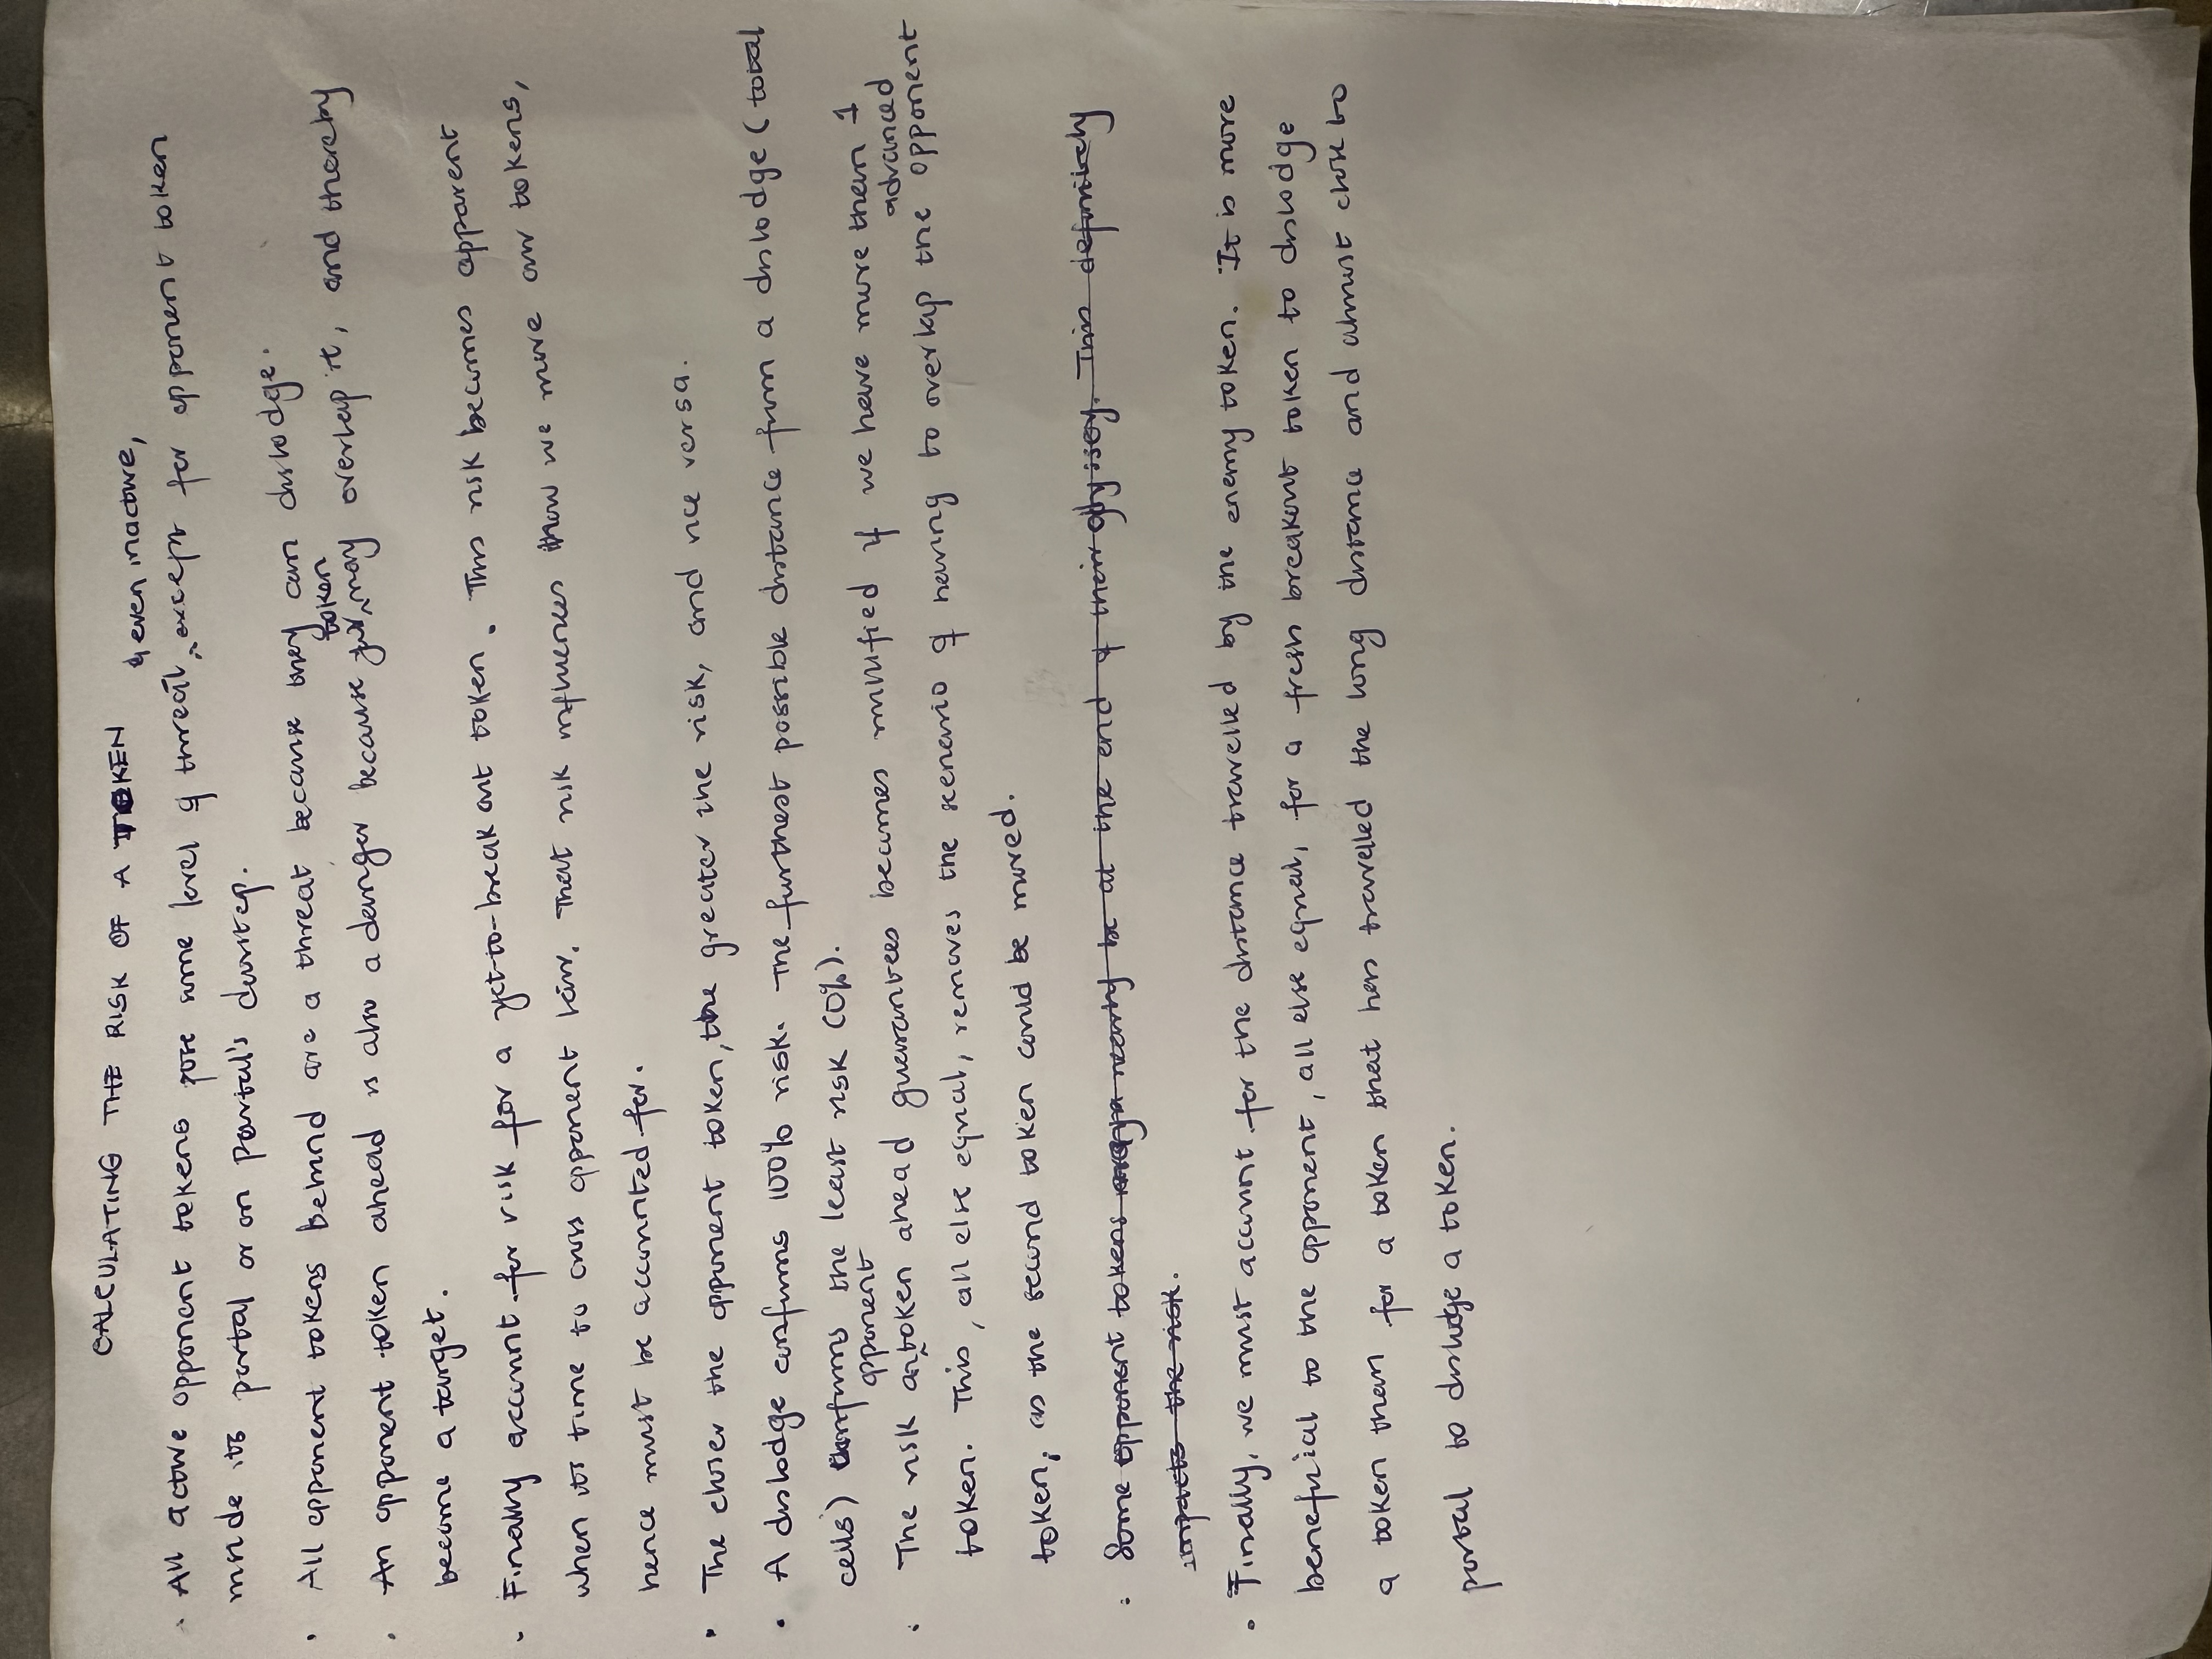 CALCULATING THE RISK OF A TOKEN
& even inactive,
. All active opponent tokens pose some level of threat ^ except for opponent token
inside its portal or on portal's doorstep.
. All opponent tokens behind are a threat because they can dislodge.
token
. An opponent token ahead is also a danger because ^ may overlap it, and thereby
become a target.
. Finally account for risk for a yet-to-break out token. This risk becomes apparent
when its time to cross opponent lair. That risk influences how we move our tokens,
hence must be accounted for.
. The closer the opponent token, the greater the risk, and vice versa.
. A dislodge confirms 100% risk. The furthest possible distance from a dislodge (total
cells) confirms the least risk (0%).
opponent
. The risk an ^ token ahead guarantees becomes nullified if we have more than 1
advanced
token. This, all else equal, removes the scenario of having to overlap the opponent
token, as the second token could be moved.
. Some opponent tokens nearly be at the end of their odyssey. This definitely
impacts the risk.
. Finally, we must account for the distance travelled by the enemy token. It is more
beneficial to the opponent, all else equal, for a fresh breakout token to dislodge
a token than for a token that has travelled the long distance and almost close to
portal to dislodge a token.